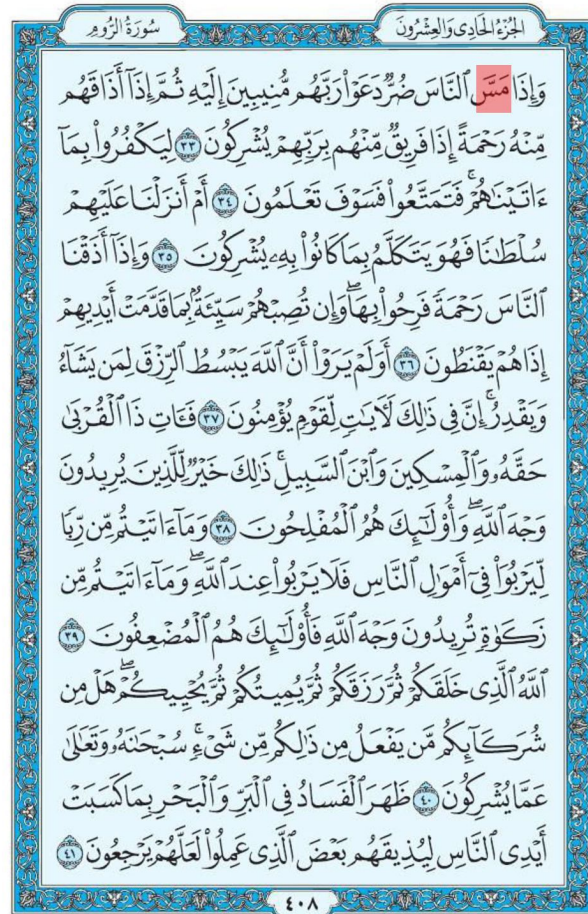 سُورَةُ الرُّومِ
الجُزْءُ الحَادِي وَالعِشْرُونَ
وَإِذَا مَسَّ ٱلنَّاسَ ضُرٌّ دَعَوْا۟ رَبَّهُم مُّنِيبِينَ إِلَيْهِ ثُمَّ إِذَآ أَذَاقَهُم
مِّنْهُ رَحْمَةً إِذَا فَرِيقٌ مِّنْهُم بِرَبِّهِمْ يُشْرِكُونَ ٣٣ لِيَكْفُرُوا۟ بِمَآ
ءَاتَيْنَٰهُمْ ۚ فَتَمَتَّعُوا۟ فَسَوْفَ تَعْلَمُونَ ٣٤ أَمْ أَنزَلْنَا عَلَيْهِمْ
سُلْطَٰنًا فَهُوَ يَتَكَلَّمُ بِمَا كَانُوا۟ بِهِۦ يُشْرِكُونَ ٣٥ وَإِذَآ أَذَقْنَا
ٱلنَّاسَ رَحْمَةً فَرِحُوا۟ بِهَا ۖ وَإِن تُصِبْهُمْ سَيِّئَةٌۢ بِمَا قَدَّمَتْ أَيْدِيهِمْ
إِذَا هُمْ يَقْنَطُونَ ٣٦ أَوَلَمْ يَرَوْا۟ أَنَّ ٱللَّهَ يَبْسُطُ ٱلرِّزْقَ لِمَن يَشَآءُ
وَيَقْدِرُ ۚ إِنَّ فِى ذَٰلِكَ لَءَايَٰتٍ لِّقَوْمٍ يُؤْمِنُونَ ٣٧ فَـَٔاتِ ذَا ٱلْقُرْبَىٰ
حَقَّهُۥ وَٱلْمِسْكِينَ وَٱبْنَ ٱلسَّبِيلِ ۚ ذَٰلِكَ خَيْرٌ لِّلَّذِينَ يُرِيدُونَ
وَجْهَ ٱللَّهِ ۖ وَأُو۟لَٰٓئِكَ هُمُ ٱلْمُفْلِحُونَ ٣٨ وَمَآ ءَاتَيْتُم مِّن رِّبًا
لِّيَرْبُوَا۟ فِىٓ أَمْوَٰلِ ٱلنَّاسِ فَلَا يَرْبُوا۟ عِندَ ٱللَّهِ ۖ وَمَآ ءَاتَيْتُم مِّن
زَكَوٰةٍ تُرِيدُونَ وَجْهَ ٱللَّهِ فَأُو۟لَٰٓئِكَ هُمُ ٱلْمُضْعِفُونَ ٣٩
ٱللَّهُ ٱلَّذِى خَلَقَكُمْ ثُمَّ رَزَقَكُمْ ثُمَّ يُمِيتُكُمْ ثُمَّ يُحْيِيكُمْ ۖ هَلْ مِن
شُرَكَآئِكُم مَّن يَفْعَلُ مِن ذَٰلِكُم مِّن شَىْءٍ ۚ سُبْحَٰنَهُۥ وَتَعَٰلَىٰ
عَمَّا يُشْرِكُونَ ٤٠ ظَهَرَ ٱلْفَسَادُ فِى ٱلْبَرِّ وَٱلْبَحْرِ بِمَا كَسَبَتْ
أَيْدِى ٱلنَّاسِ لِيُذِيقَهُم بَعْضَ ٱلَّذِى عَمِلُوا۟ لَعَلَّهُمْ يَرْجِعُونَ ٤١
٤٠٨